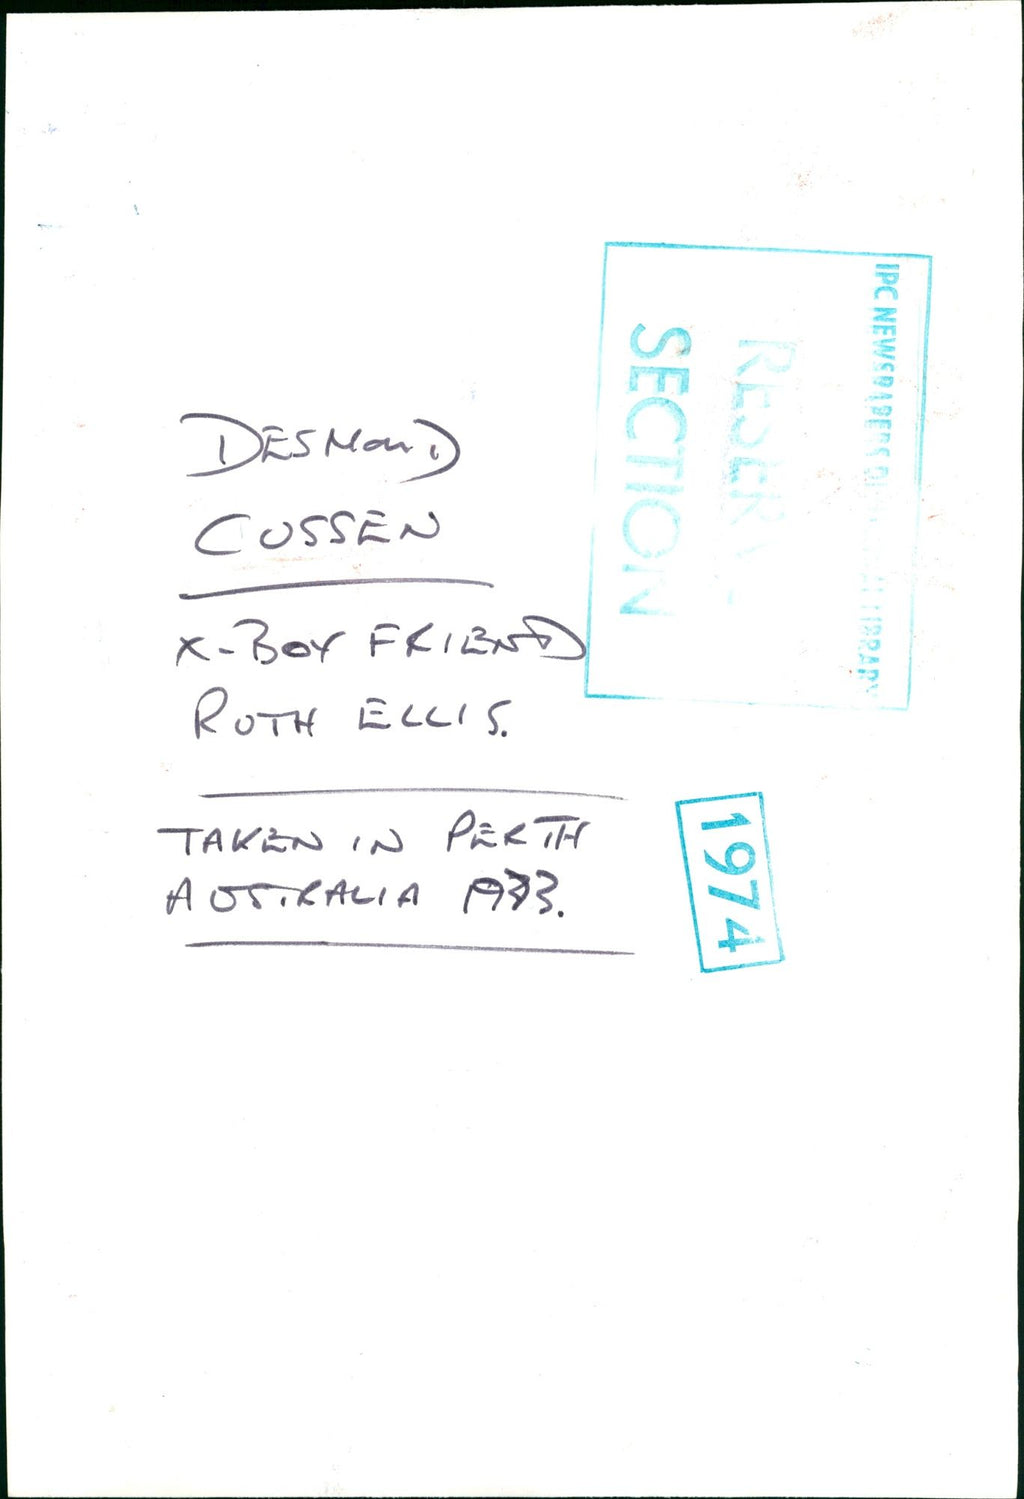 DESMOND
CUSSEN
X-BOY FRIEND
RUTH ELLIS.
TAKEN IN PERTH
AUSTRALIA
IPC NEWSPAPERS LIBRARY
SECTION
1974